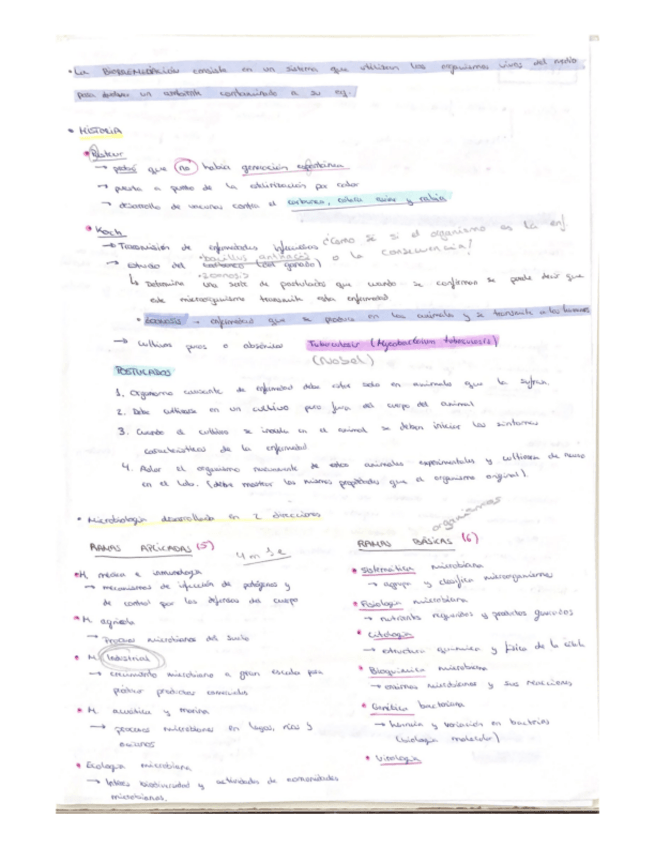 • La BIORREMEDIACIÓN consiste en un sistema que utilizan los organismos vivos del medio
para un ambiente contaminado a su eq.
• HISTORIA
• Pasteur
→ que no había generación espontánea
→ puesta a punto de la esterilización por calor
→ desarrollo de vacunas contra el carbunco, cólera aviar y rabia
• Koch
→ Transmisión de enfermedades infecciosas
¿Cómo sé si el organismo es la enf.
o la consecuencia?
bacillus antracis
→ estudio del carbunco (del ganado)
zoonosis
↳ Determina una serie de postulados que cuando se confirmas se puede decir que
este microorganismo transmite esta enfermedad
• zoonosis → enfermedad que se produce en los animales y se transmite a los humanos
→ cultivos puros o axénicos Tuberculosis (Mycobacterium tuberculosis)
(Nobel)
POSTULADOS
1. Organismo causante de enfermedad debe estar solo en animales que la sufran.
2. Debe cultivarse en un cultivo puro fuera del cuerpo del animal
3. Cuando el cultivo se inocula en el animal se deben iniciar los síntomas
característicos de la enfermedad
4. Aislar el organismo nuevamente de estos animales experimentales y cultivarse de nuevo
en el lab. (debe mostrar las mismas propiedades que el organismo original).
• Microbiología desarrollada en 2 direcciones
organismos
RAMAS APLICADAS (5)
• M. médica e inmunología
→ mecanismos de infección de patógenos y
de control por las defensas del cuerpo
• M. agrícola
→ Procesos microbianos del suelo
• M. Industrial
→ crecimiento microbiano a gran escala para
producir productos comerciales
• M. acuática y marina
→ procesos microbianos en lagos, ríos y
océanos
• Ecología microbiana
→ biodiversidad y actividades de comunidades
microbianas.
RAMAS BÁSICAS (6)
• Sistemática microbiana
→ agrupa y clasifica microorganismos
• Fisiología microbiana
→ nutrientes requeridos y productos
• Citología
→ estructura química y física de la célula
• Bioquímica microbiana
→ enzimas microbianas y sus reacciones
• Genética bacteriana
→ herencia y variación en bacterias
(biología molecular)
• Virología